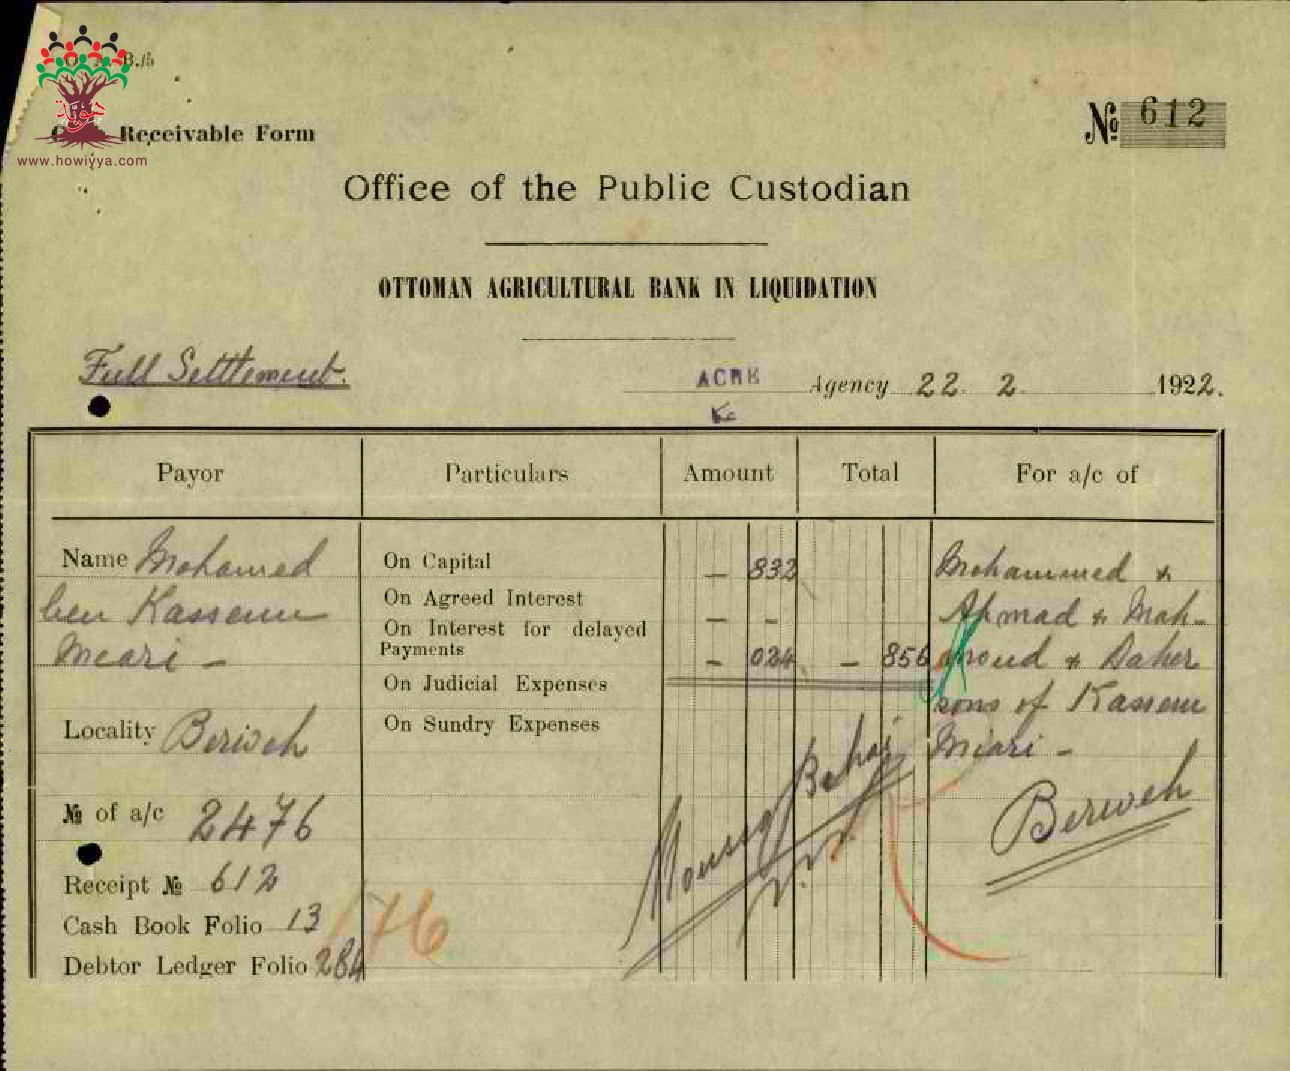 B./5
Receivable Form
www.howiyya.com
№ 612
Office of the Public Custodian
OTTOMAN AGRICULTURAL BANK IN LIQUIDATION
Full Settlement.
ACRE Agency 22 2 1922.
Payor Particulars Amount Total For a/c of
Name Mohamed
ben Kassem
Meari -
Locality Berweh
№ of a/c 2476
Receipt № 612
Cash Book Folio 13
Debtor Ledger Folio 284
On Capital - 832
On Agreed Interest - -
On Interest for delayed
Payments - 024 - 856
On Judicial Expenses
On Sundry Expenses
Mohammed &
Ahmad & Mah-
moud & Daher
sons of Kassem
Miari -
Berweh
Bahai
176